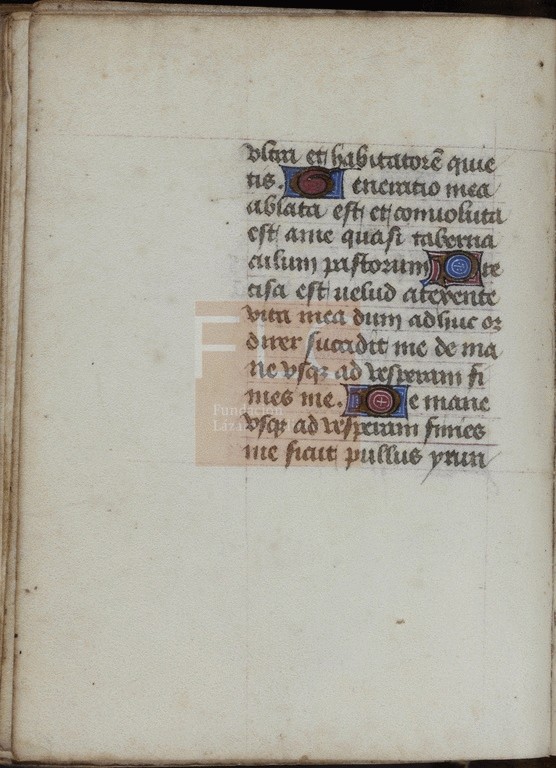 vltra et habitatorē quie
tis. Generatio mea
ablata est et conuoluta
est ame quasi taberna
culum pastorum Pre
cisa est uelud atexente
vita mea dum adhuc or
direr succidit me de ma
ne vsqꝫ ad vesperam fi
nies me. De mane
vsqꝫ ad vesperam finies
me sicut pullus yrun
FLG
Fundación
Lázaro